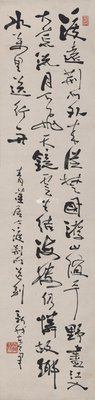 渡遠荊門外來從楚國遊山隨平野盡江入
大荒流月下飛天鏡雲生結海樓仍憐故鄉
水萬里送行舟
青蓮居士渡荊門送別